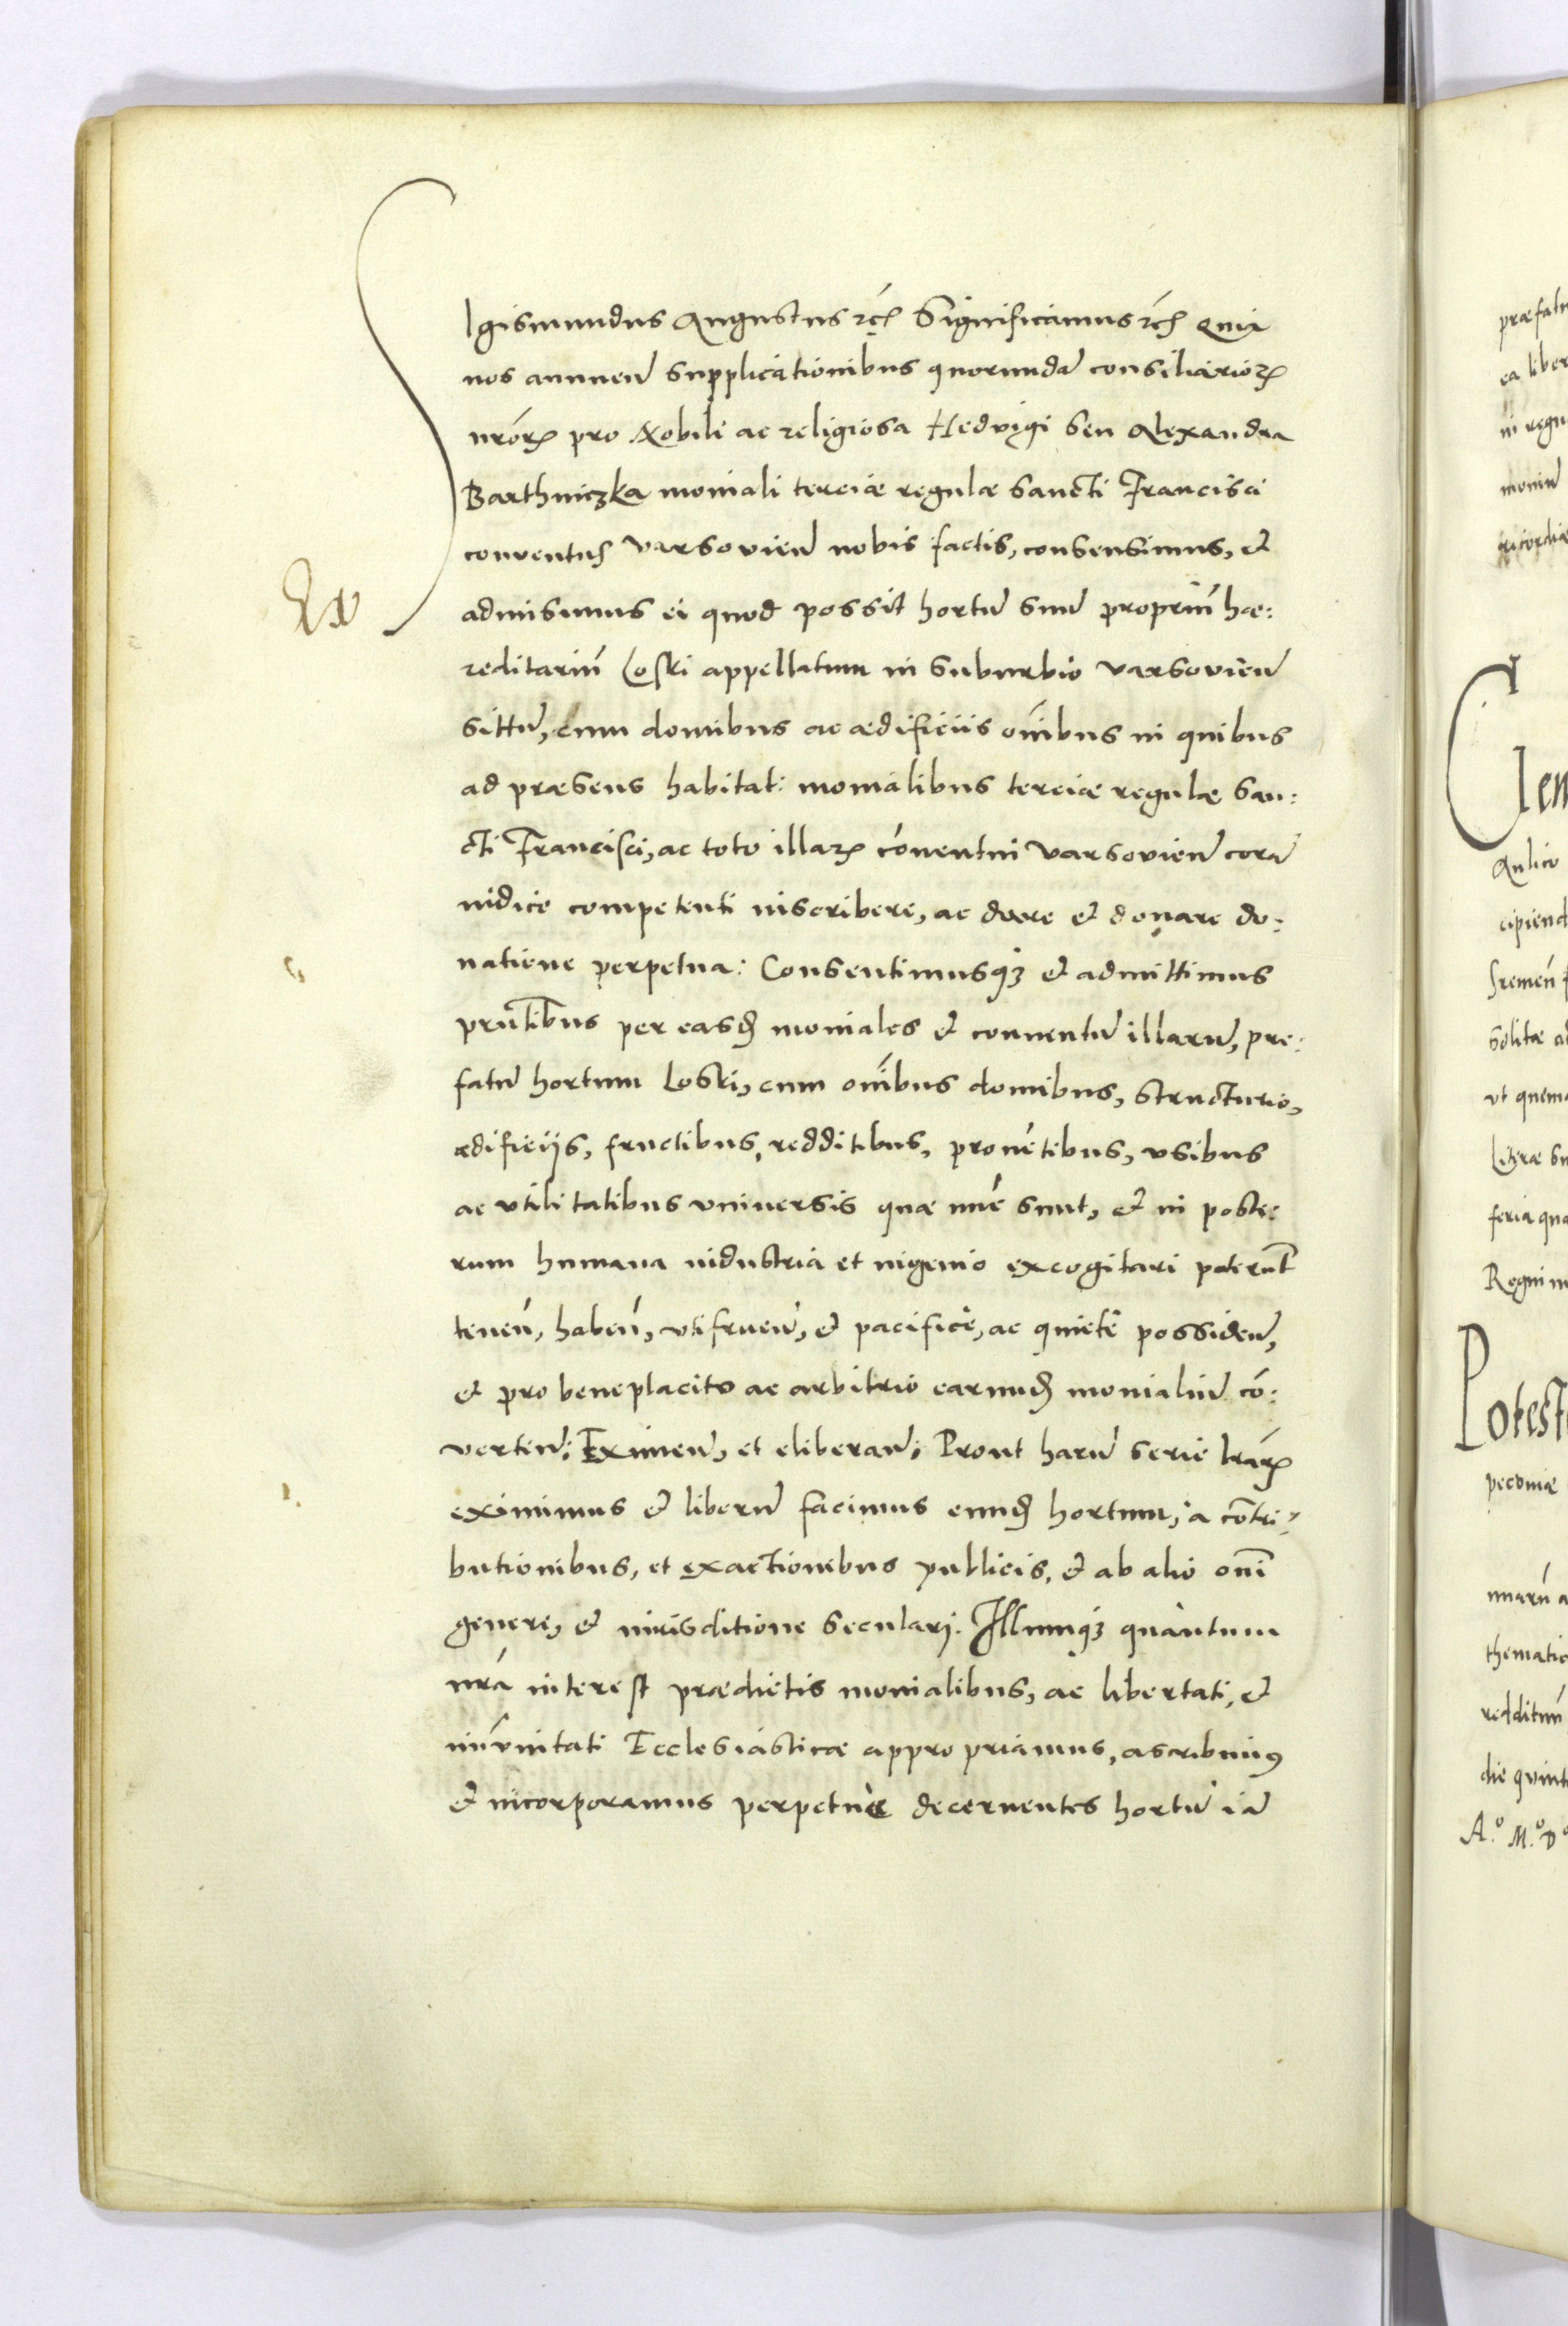 SIgismundus Augustus etc. Significamus etc. Quia
nos annuen̄ supplicationibus quorundā consiliarioꝝ
nr̄oꝝ pro Nobili ac religiosa Hedvigi seu Alexandra
Barthniczka moniali terciæ regulæ sancti Francisci
conventus varsovien̄ nobis factis, consensimus, et
Ex
admisimus ei quod possit hortū suū propriū hæ:
reditariū Coski appellatum in suburbio varsovien̄
sittū, cum domibus ac ædificiis om̄ibus in quibus
ad præsens habitat: monialibus terciæ regulæ san:
cti Francisci, ac toto illaꝝ cōventui varsovien̄ corā
iudice competenti inscribere, ac dare et donare do:
natione perpetua: Consentimusqꝫ et admittimus
pn̄tibus per easdē moniales et conventū illarū, pre:
fatū hortum Loski, cum om̄ibus domibus, structuris,
ædificiis, fructibus, redditibus, provētibus, usibus
ac utilitatibus universis quæ nūc sunt, et in poste:
rum humana industria et ingenio excogitari poterūt
tenen̄, haben̄, utifruen̄, et pacificè, ac quietè possiden̄,
et pro beneplacito ac arbitrio earundē monialiū cō:
verten̄: Eximen̄, et eliberan̄: Prout harū serie lr̄aꝝ
eximimus et liberū facimus eundē hortum, à cōtri:
butionibus, et exactionibus publicis, et ab alio om̄i
genere, et iurisditione seculari. Illumqꝫ quantum
nr̄a interest prædictis monialibus, ac libertati, et
im̄unitati Ecclesiasticæ appropriamus, ascribimꝰ
et incorporamus perpetuè decernentes hortū iā
præfatū
ea liber
in regn
monin̄
Clem
Aulico
cipiend
Sremen̄
solitæ
ut quem
Literæ
feria qua
Regni
Potest
pecuniæ
thematic
redditum̄
die quint
A.º M.º D